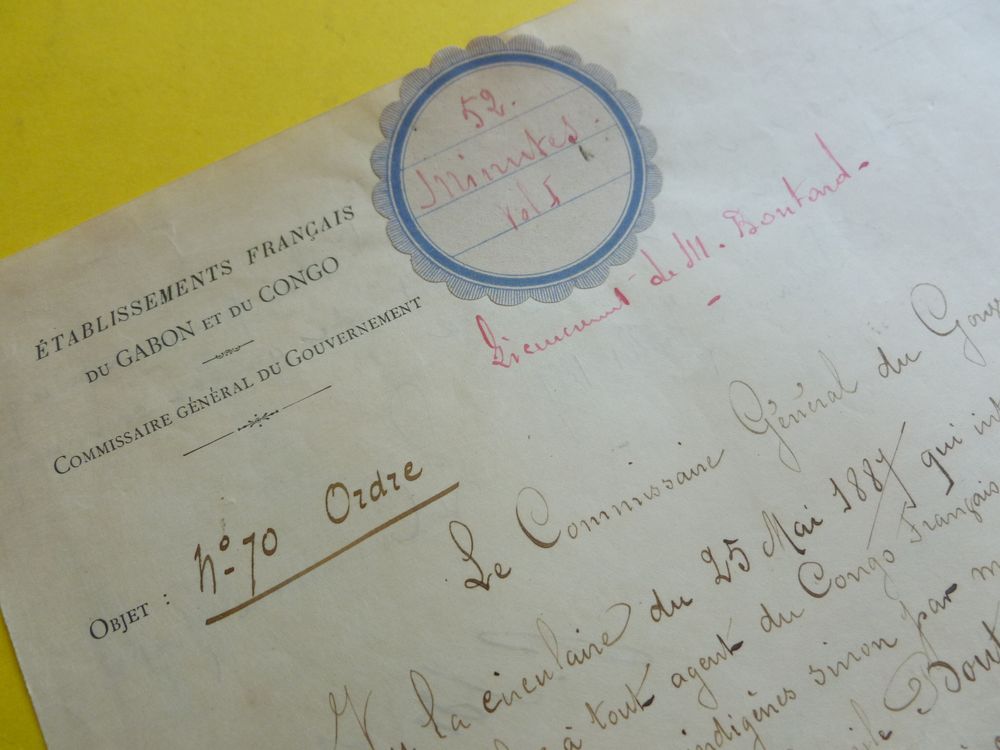 52.
Minutes
vol 5
Licenciement de M. Boutard.
ÉTABLISSEMENTS FRANÇAIS
DU GABON ET DU CONGO
COMMISSAIRE GÉNÉRAL DU GOUVERNEMENT
No 70 Ordre
OBJET :
Le Commissaire Général du Gouv
Vu la circulaire du 25 Mai 1887 qui int
à tout agent du Congo Français
indigènes sinon par m
Bout